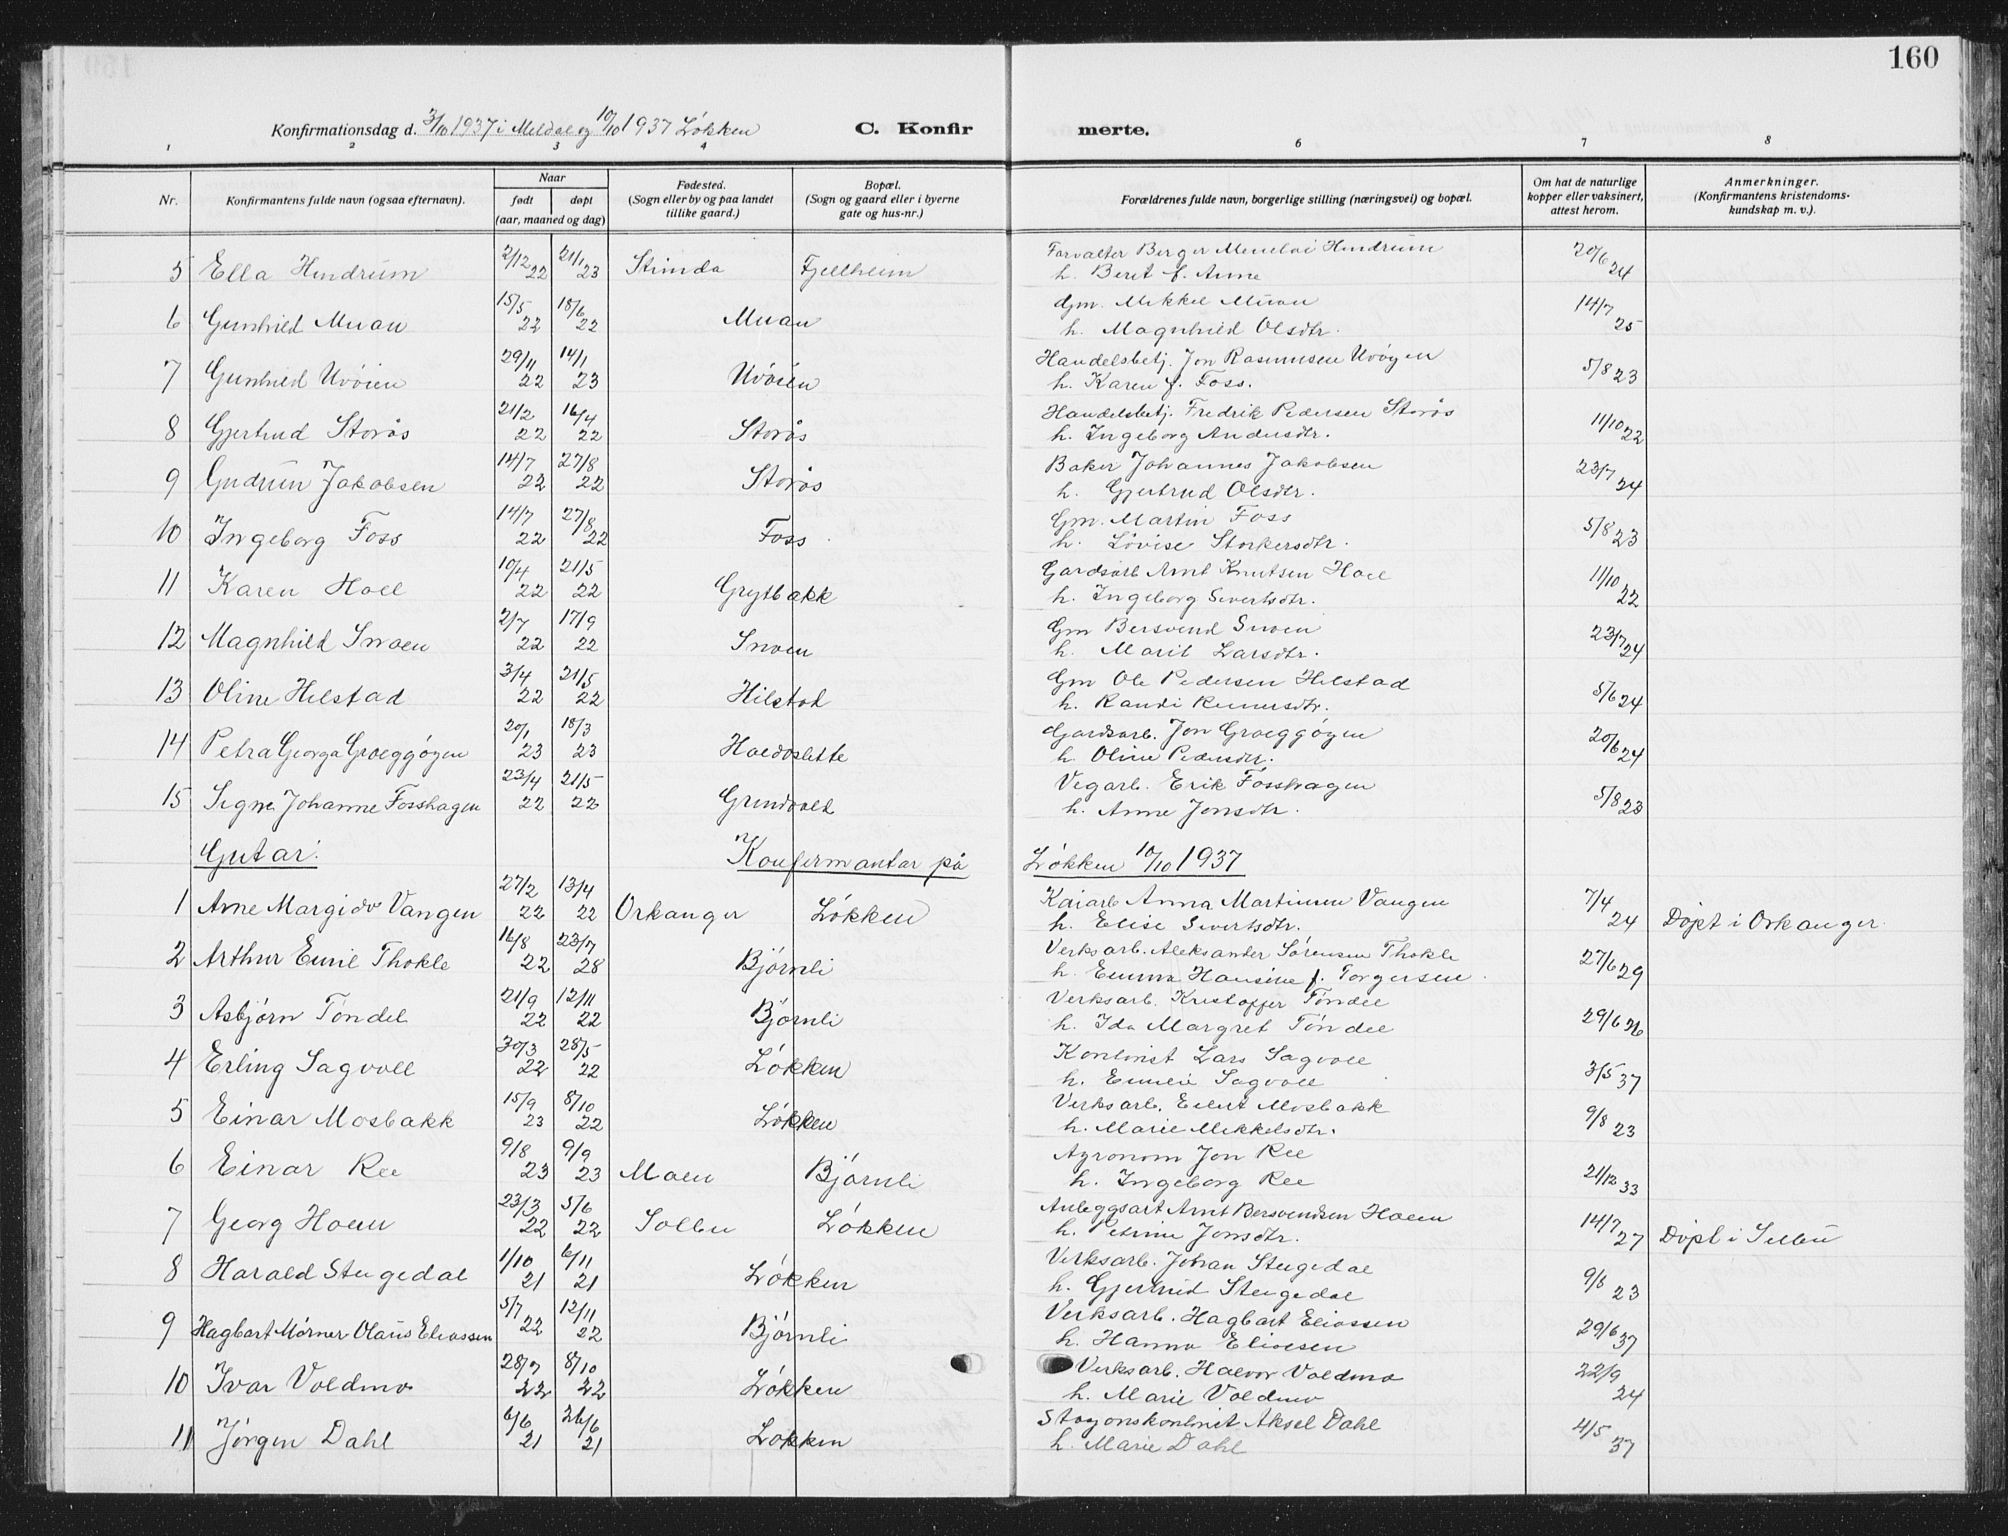 160
Konfirmationsdag d. 3/10 1937 i Meldal og 10/10 1937 Løkken C. Konfirmerte.
1 2 3 4 6 7 8
Nr. Konfirmantens fulde navn (ogsaa efternavn). Naar født døpt (aar, maaned og dag) Fødested. (Sogn eller by og paa landet tillike gaard.) Bopæl. (Sogn og gaard eller i byerne gate og hus-nr.) Forældrenes fulde navn, borgerlige stilling (næringsvei) og bopæl. Om hat de naturlige kopper eller vaksinert, attest herom. Anmerkninger. (Konfirmantens kristendoms-kundskap m. v.).
5 Ella Hindrum 2/12 22 21/1 23 Strinda Fjellheim Forvalter Berger Hindrum h. Berit f. Anne 20/6 24
6 Gunhild Muan 15/5 22 18/6 22 Muan Gm. Mikkel Muan h. Magnhild Olsdtr. 14/7 25
7 Gunhild Uvöien 29/11 22 14/1 23 Uvöien Handelsbetj. Jon Rasmussen Uvögen h. Karen f. Foss. 5/8 23
8 Gjertrud Storås 21/2 22 16/4 22 Storås Handelsbetj. Fredrik Pedersen Storås h. Ingeborg Andersdtr. 11/10 22
9 Gudrun Jakobsen 14/7 22 27/8 22 Storås Baker Johannes Jakobsen h. Gjertrud Olsdtr. 23/7 24
10 Ingeborg Foss 14/7 22 27/8 22 Foss Gm. Martin Foss h. Lovise Storkersdtr. 5/8 23
11 Karen Hoel 10/4 22 21/5 22 Grytbakk Gardsarb Arnt Knutsen Hoel h. Ingeborg Sivertsdtr. 11/10 22
12 Magnhild Snoen 2/7 22 17/9 22 Snoen Gm Bersvend Snoen h. Marit Larsdtr. 23/7 24
13 Oline Hilstad 3/4 22 21/5 22 Hilstad Gm Ole Pedersen Hilstad h. Randi 5/6 24
14 Petra Georga Groeggöyen 20/1 23 18/3 23 Gardsarb. Jon Groeggöyen h. Oline Pedersdtr. 20/6 24
15 Signe Johanne Fosshagen 23/4 22 21/5 22 Grindvold Vegarb. Erik Fosshagen h. Anne Jonsdtr. 5/8 23
Gutar: Konfirmantar på Løkken 10/10 1937
1 Arne Margido Vangen 27/2 22 13/4 22 Orkanger Løkken Kaiarb Martinsen Vangen h. Elise Sivertsdtr. 7/4 24 Døpt i Orkanger.
2 Arthur Emil Thokle 16/8 22 23/7 28 Bjørnli Verksarb. Aleksander Sørensen Thokle h. Emma Hansine f. Torgersen. 27/6 29
3 Asbjørn Töndel 21/9 22 12/11 22 Bjørnli Verksarb. Kristoffer Töndel h. Ida Margret Töndel 29/6 36
4 Erling Sagvoll 30/3 22 28/5 22 Løkken Kontorist Lars Sagvoll h. Emelie Sagvoll 3/5 37
5 Einar Mosbakk 15/9 23 8/10 22 Løkken Verksarb. Eilert Mosbakk h. Marie Mikkelsdtr. 9/8 23
6 Einar Ree 9/8 23 9/9 23 Moen Bjørnli Agronom Jon Ree h. Ingeborg Ree 21/12 33
7 Georg Hoem 23/3 22 5/6 22 Selbu Løkken Anleggsarb Arnt Bersvendsen Hoem h. Petrine Jonsdtr. 14/7 27 Døpt i Selbu
8 Harald Stengedal 1/10 21 6/11 21 Løkken Verksarb. Johan Stengedal h. Gjertrud Stengedal 9/8 23
9 Hagbart Mörner Olaus Eliassen 5/7 22 12/11 22 Bjørnli Verksarb. Hagbart Eliassen h. Hanna Eliassen 29/6 37
10 Ivar Voldmo 28/7 22 8/10 22 Løkken Verksarb. Halvor Voldmo h. Marie Voldmo 22/9 24
11 Jørgen Dahl 6/6 21 26/6 21 Løkken Aksel Dahl h. Marie Dahl 4/5 37